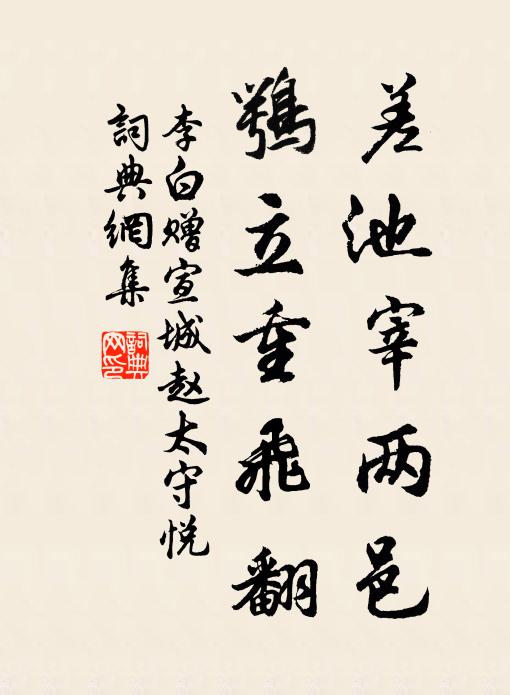 差池宰两邑
鶚立重飛翻
李白赠宣城赵太守悅
詞典網集
詞典网印